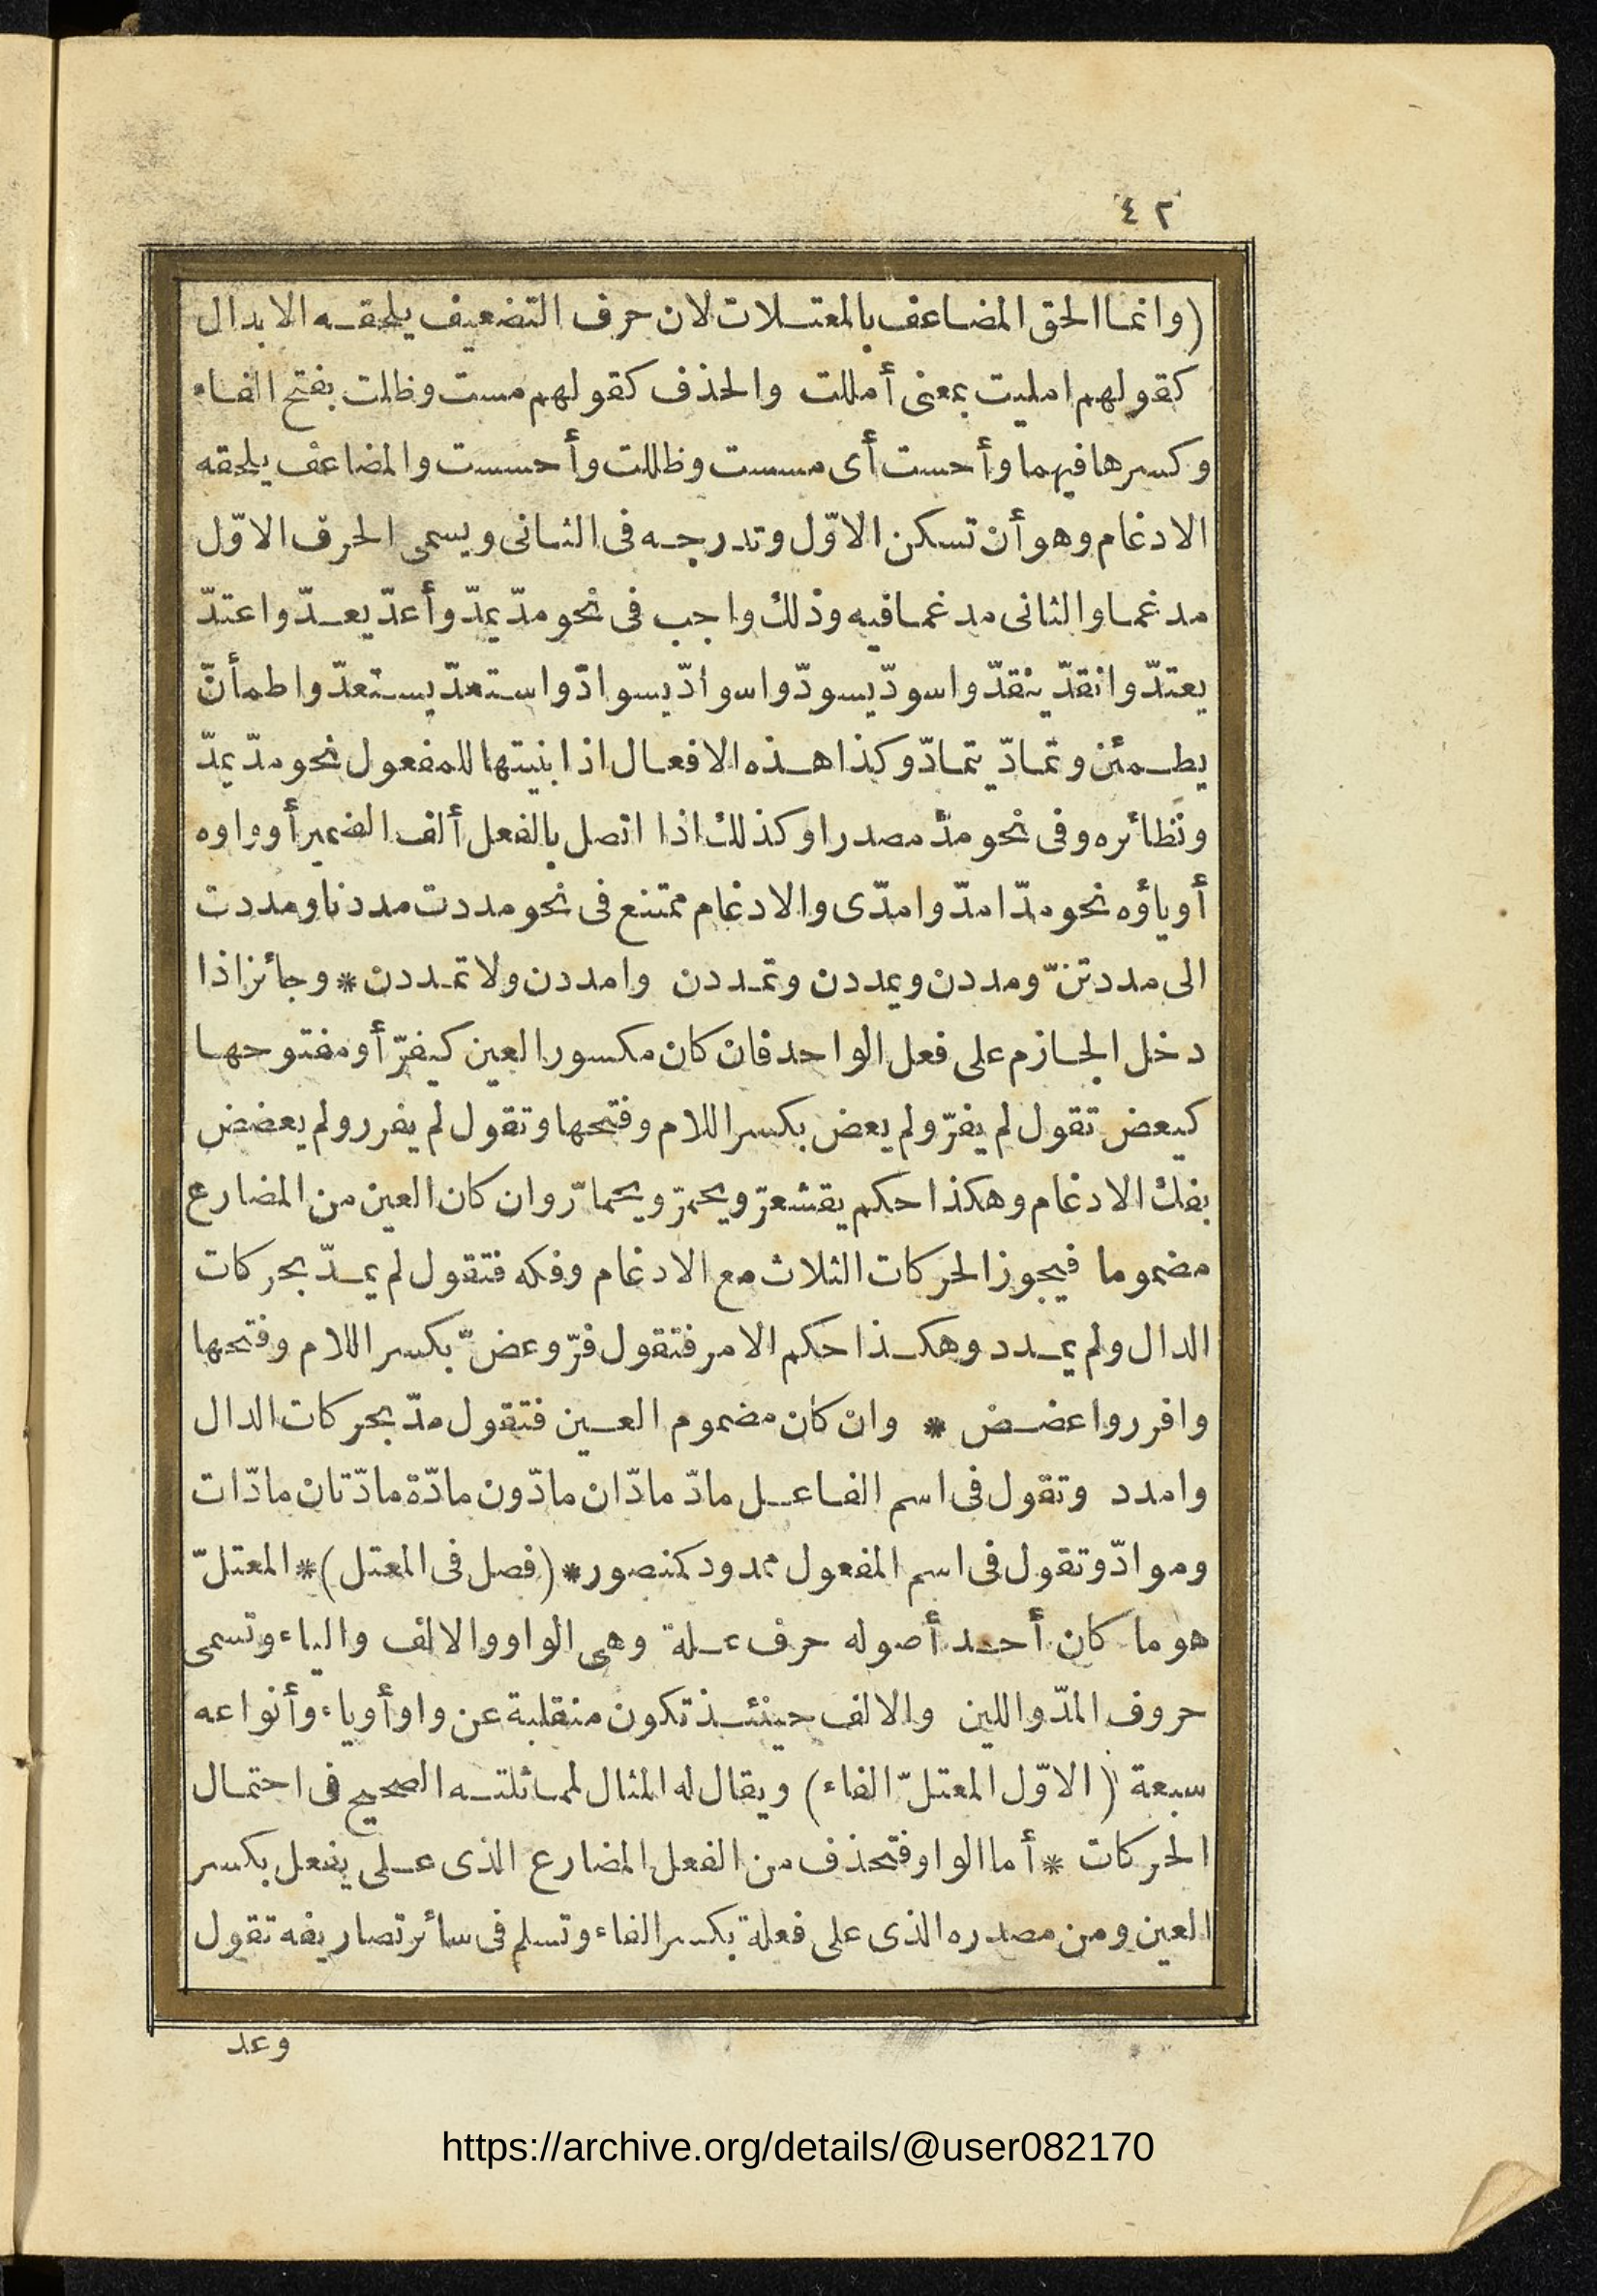 ٤٢
(وانما الحق المضاعف بالمعتلات لان حرف التضعيف يلحقه الابدال
كقولهم امليت بمعنى أمللت والحذف كقولهم مست وظلت بفتح الفاء
وكسرها فيهما وأحست أى مسست وظللت وأحسست والمضاعف يلحقه
الادغام وهو أن تسكن الاوّل وتدرجه فى الثانى ويسمى الحرف الاوّل
مدغما والثانى مدغما فيه وذلك واجب فى نحو مدّ يمدّ وأعدّ يعدّ واعتدّ
يعتدّ وانقدّ ينقدّ واسودّ يسودّ واسوادّ يسوادّ واستعدّ يستعدّ واطمأنّ
يطمئن وتمادّ يتمادّ وكذا هذه الافعال اذا بنيتها للمفعول نحو مدّ يمدّ
ونظائره وفى نحو مدّ مصدرا وكذلك اذا اتصل بالفعل ألف الضمير أو واوه
أو ياؤه نحو مدّا مدّوا مدّى والادغام ممتنع فى نحو مددت مددنا ومددت
الى مددتنّ ومددن ويمددن وتمددن وامددن ولا تمددن * وجائز اذا
دخل الجازم على فعل الواحد فان كان مكسور العين كيفرّ أو مفتوحها
كيعض تقول لم يفرّ ولم يعض بكسر اللام وفتحها وتقول لم يفرر ولم يعضض
بفك الادغام وهكذا حكم يقشعرّ ويحمرّ ويحمارّ وان كان العين من المضارع
مضموما فيجوز الحركات الثلاث مع الادغام وفكه فتقول لم يمدّ بحركات
الدال ولم يمدد وهكذا حكم الامر فتقول فرّ وعضّ بكسر اللام وفتحها
وافرر واعضض * وان كان مضموم العين فتقول مدّ بحركات الدال
وامدد وتقول فى اسم الفاعل مادّ مادّان مادّون مادّة مادّتان مادّات
وموادّ وتقول فى اسم المفعول ممدود كمنصور * (فصل فى المعتل) * المعتلّ
هو ما كان أحد أصوله حرف علة وهى الواو والالف والياء وتسمى
حروف المدّ واللين والالف حينئذ تكون منقلبة عن واو أو ياء وأنواعه
سبعة (الاوّل المعتلّ الفاء) ويقال له المثال لمماثلته الصحيح فى احتمال
الحركات * أما الواو فتحذف من الفعل المضارع الذى على يفعل بكسر
العين ومن مصدره الذى على فعلة بكسر الفاء وتسلم فى سائر تصاريفه تقول
وعد
https://archive.org/details/@user082170